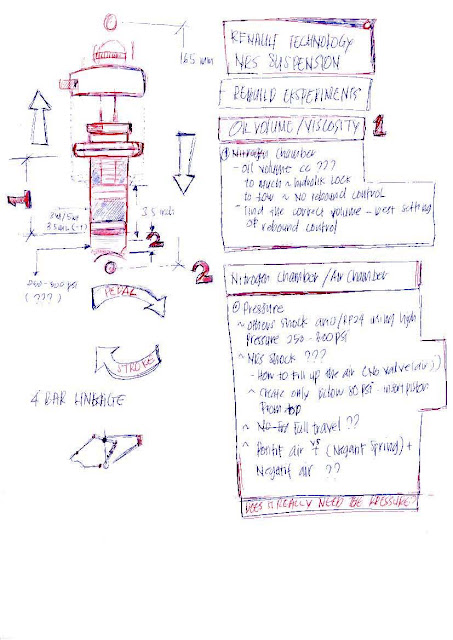 165 mm
RENAULT TECHNOLOGY
NRS SUSPENSION
REBUILD EKSPERIMENTS
OIL VOLUME/VISCOSITY 1
① Nitrogen Chamber
- Oil volume cc ???
to much ~ hidrolik lock
to low ~ No rebound control
- Find the correct volume - best setting
of rebound control
1
3.5 inch
2
250-300 psi
(???)
2
Nitrogen Chamber/Air Chamber
② Pressure
~ others shock using high
Pressure 250-300 psi
^ NRS shock ???
- How to fill up the air (No valve (air))
^ Create only below 80 psi - insert piston
From top
^ No for full travel ??
^ Positif air vs (Negatif Spring) +
Negatif air ??
DOES IT REALLY NEED THE PRESSURE?
PEDAL
STROKE
4 BAR LINKAGE